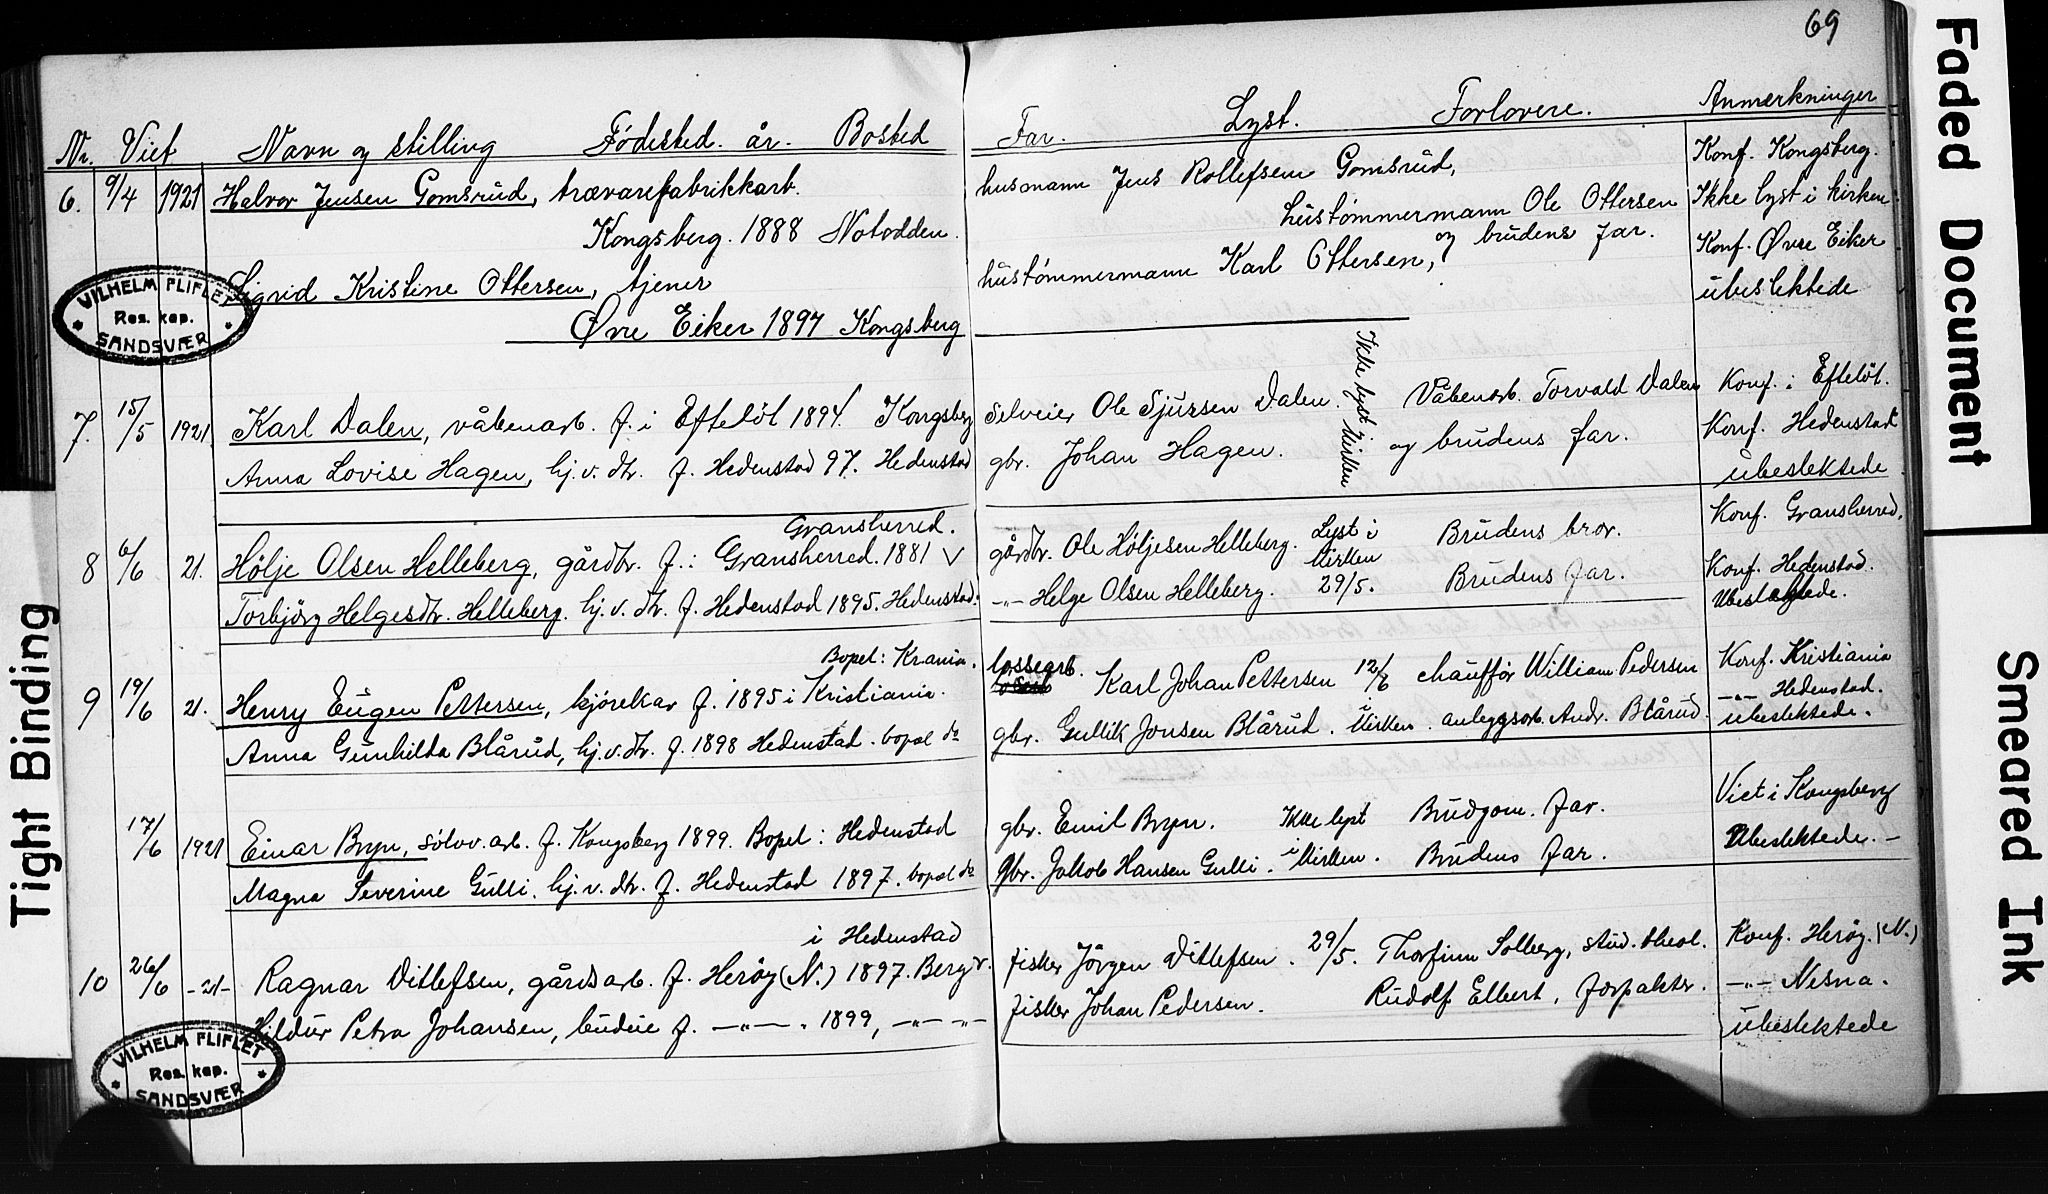 69
Nr. Viet Navn og stilling Fødested. år. Bosted Far. Lyst. Forlovere. Anmerkninger
6. 9/4 1921 Halvor Jensen Gomsrud, trævarefabrikkarb.
Kongsberg. 1888 Notodden.
Sigrid Kristine Ottersen, tjener
Øvre Eiker 1897 Kongsberg
husmann Jens Rollefsen Gomsrud,
hustømmermann Ole Ottersen
og brudens far.
hustømmermann Karl Ottersen,
Konf. Kongsberg.
Ikke lyst i kirken.
Konf. Øvre Eiker
ubeslektede
7. 15/5 1921 Karl Dalen, våbenarb. f. i Efteløt 1894. Kongsberg
Anna Lovise Hagen, hj.v. dtr. f. Hedenstad 97. Hedenstad
Selveier Ole Sjursen Dalen.
gbr. Johan Hagen.
Ikke lyst i kirken
Våbenarb. Torvald Dalen
og brudens far.
Konf. i Efteløt.
Konf. Hedenstad
ubeslektede
Gransherred.
8 6/6 21. Hølje Olsen Helleberg, gårdbr. f. i Gransherred. 1881
Torbjörg Helgesdtr. Helleberg. hj. v. dtr. f. Hedenstad 1895. Hedenstad.
gårdbr. Ole Høljesen Helleberg.
-"- Helge Olsen Helleberg.
Lyst i
kirken
29/5.
Brudens bror.
Brudens far.
Konf. Gransherred,
Konf. Hedenstad.
Ubeslektede.
Bopel: Krania.
9 19/6 21. Henry Eugen Pettersen, kjørekar f. 1895 i Kristiania.
Anna Gunhilda Blårud, hj.v. dtr. f. 1898 Hedenstad. bopæl do
lossearb. Karl Johan Pettersen 12/6 chauffør William Pedersen
gbr. Gullik Jonsen Blårud. i kirken. anleggsarb. Andr. Blårud.
Konf. Kristiania
-"- Hedenstad.
ubeslektede.
17/6 1921 Einar Bryn, sølvv. arb. f. Kongsberg 1899. Bopel: Hedenstad
Magna Severine Gulli. hj. v. dtr. f. Hedenstad 1897. bopæl do
gbr. Emil Bryn. Ikke lyst Brudgom. far.
Gbr. Jakob Hansen Gulli. i kirken. Brudens far.
Viet i Kongsberg
Ubeslektede. -
i Hedenstad
10 26/6 -21- Ragnar Ditlefsen, gårdsarb. f. Herøy (N.) 1897. Berg
Hildur Petra Johansen, budeie f. -"- 1899, -"- -"-
fisker Jørgen Ditlefsen. 29/5. Thorfinn Solberg, stud. theol.
fisker Johan Pedersen. Rudolf Elbert, forpakter.
Konf. Herøy. (N.)
-"- Nesna.
ubeslektede
VILHELM FLIFLET
Res. kap.
SANDSVÆR
VILHELM FLIFLET
Res. kap.
SANDSVÆR
Tight Binding
Faded Document
Smeared Ink